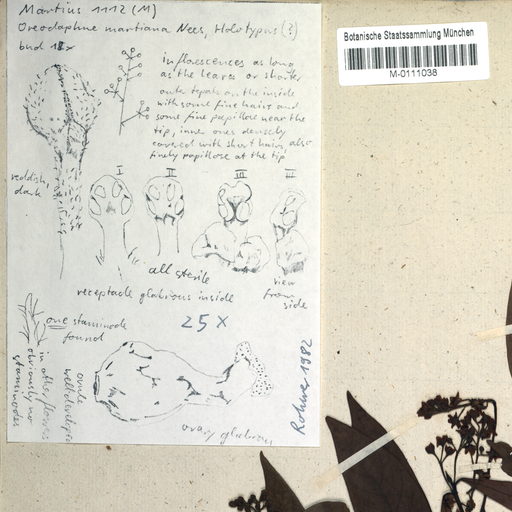 Martius 1112 (M)
Oreodaphne martiana Nees, Holotypus (?)
bud 18x
inflorescences as long
as the leaves or shorter
outer tepals on the inside
with some fine hairs and
some fine papillose near the
tip, inner ones densely
covered with short hairs, also
finely papillose at the tip
reddish,
dark
I
II
III
III
all sterile
view
from
side
receptacle glabrous inside
25 x
one staminode
found
in other flowers
obviously no
staminodes
ovule
well developed
ovary glabrous
Rohwer 1982
Botanische Staatssammlung München
M-0111038